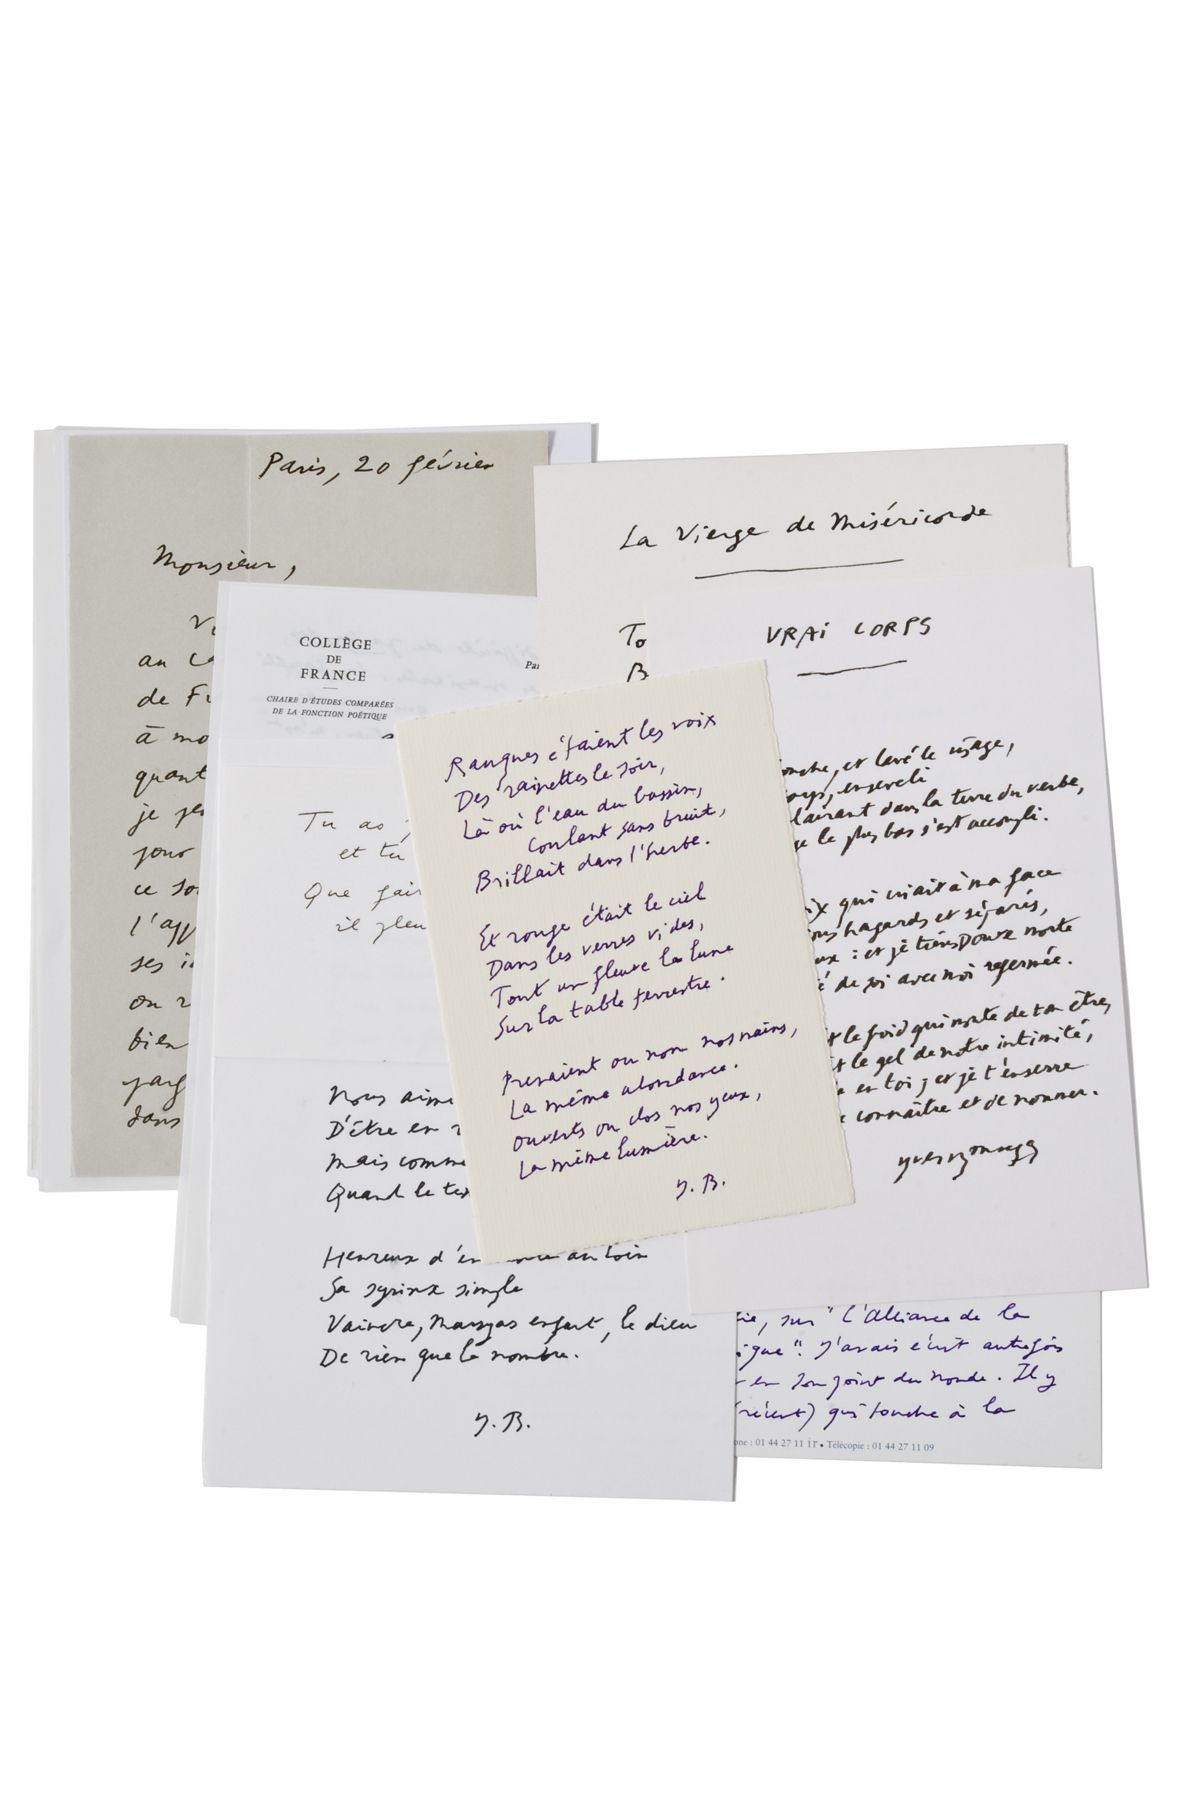 Paris, 20 février
Monsieur,
au
de
à mo
quant
je
jour
ce
l'app
ses
on
bien
dans
COLLÈGE
DE
FRANCE
CHAIRE D'ÉTUDES COMPARÉES
DE LA FONCTION POÉTIQUE
Tu as
et tu
Que fair
il pleu
Nous aimi
D'être en
Mais comme
Quand le
Heureux au loin
Sa syrinx simple
Vaincre, Marsyas enfant, le dieu
De rien que le nombre.
Y. B.
La Vierge de Miséricorde
To
B
VRAI CORPS
ouche, et lavé le visage,
orps, enseveli
lairant dans la terre du verbe,
ge le plus bas s'est accompli.
ix qui criait à ma face
ous hagards et séparés,
eux : et je tiens Douve morte
é de soi avec moi refermée.
t le froid qui monte de ton être,
t le gel de notre intimité,
e en toi ; et je t'enserre
e connaître et de nommer.
Yves Bonnefoy
Rauques étaient les voix
Des rainettes le soir,
Là où l'eau du bassin,
coulant sans bruit,
Brillait dans l'herbe.
Et rouge était le ciel
Dans les verres vides,
Tout un fleuve la lune
Sur la table terrestre.
Prenaient ou non nos mains,
La même abondance.
Ouverts ou clos nos yeux,
La même lumière.
Y. B.
ie, sur "L'Alliance de la
ique". J'avais écrit autrefois
en son point du monde. Il y
(récent) qui touche à la
one : 01 44 27 11 • Télécopie : 01 44 27 11 09